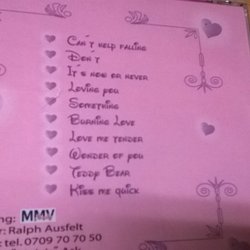 Can´t help falling
Don´t
It´s now or never
Loving you
Something
Burning Love
Love me tender
Wonder of you
Teddy Bear
Kiss me quick
ng: MMV
r: Ralph Ausfelt
tel. 0709 70 70 50